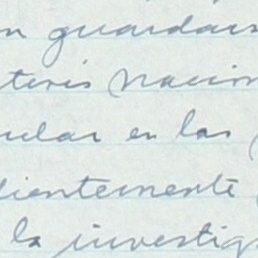 n guardars
terés nacion
ular en las
dientemente
la investig